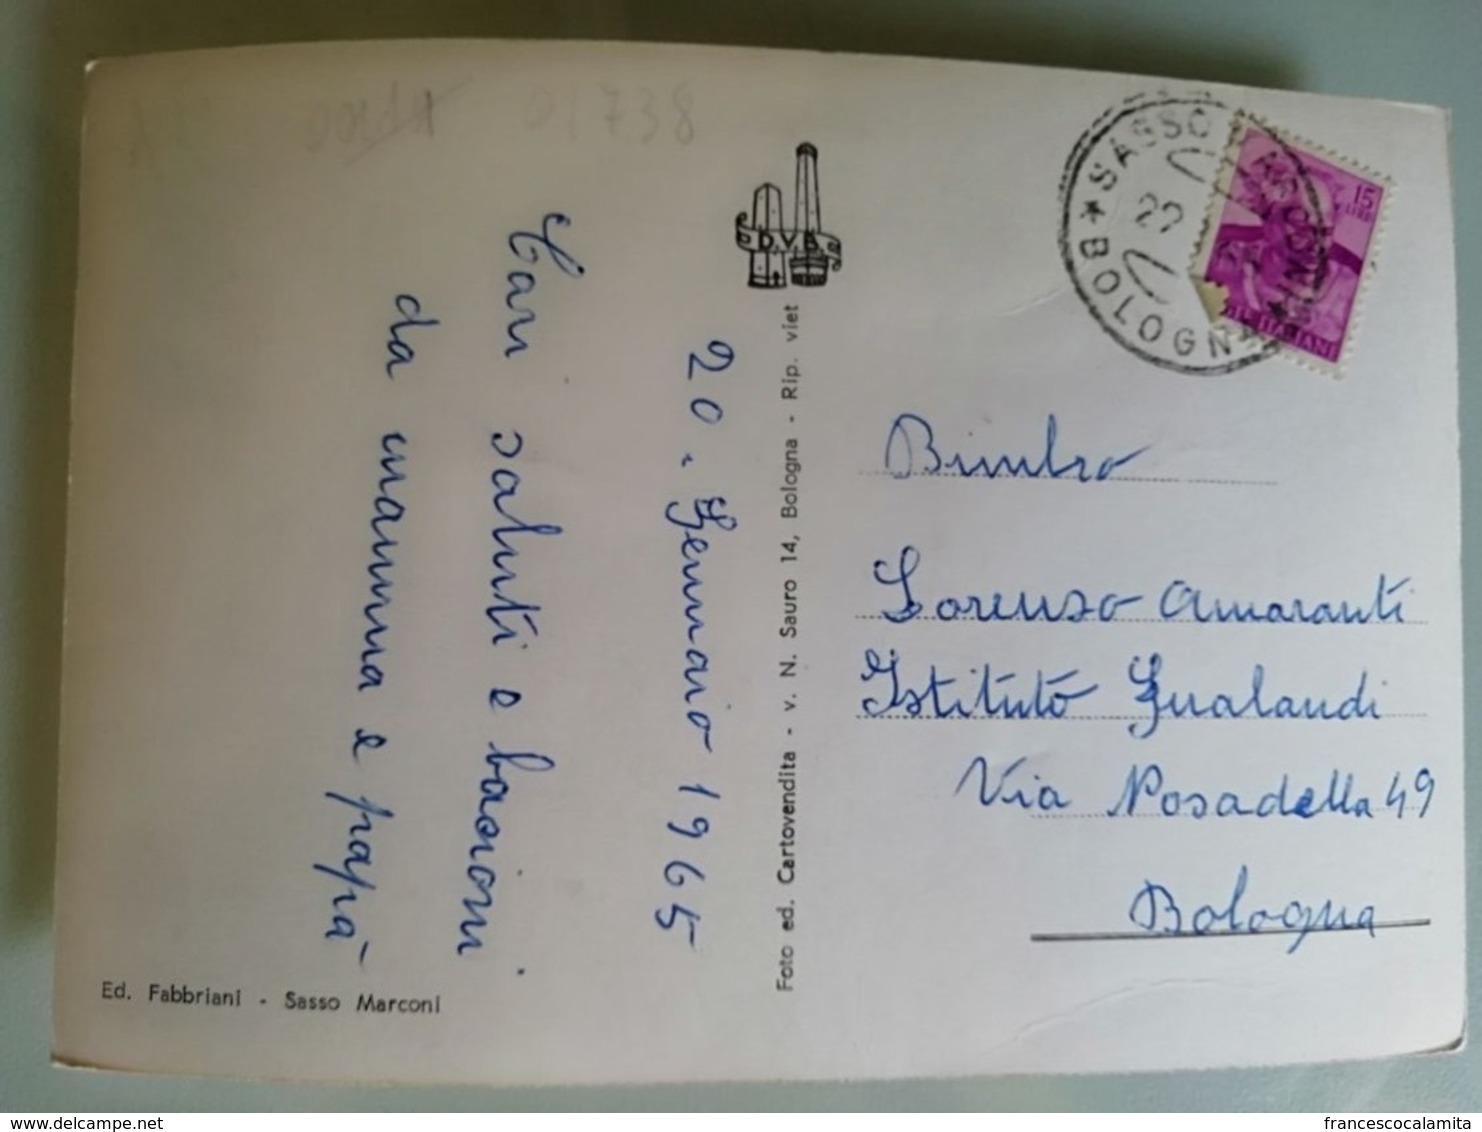 01738
D.V.B.
20. Gennaio 1965
Cari saluti e bacioni
da mamma e papà
Ed. Fabbriani - Sasso Marconi
Foto ed. Cartovendita - v. N. Sauro 14, Bologna - Rip. viet
★ SASSO MARCONI ★ BOLOGNA
15
LIRE
ITALIANE
Bimbo
Lorenzo Amaranti
Istituto Gualandi
Via Nosadella 49
Bologna
francescocalamita
delcampe.net